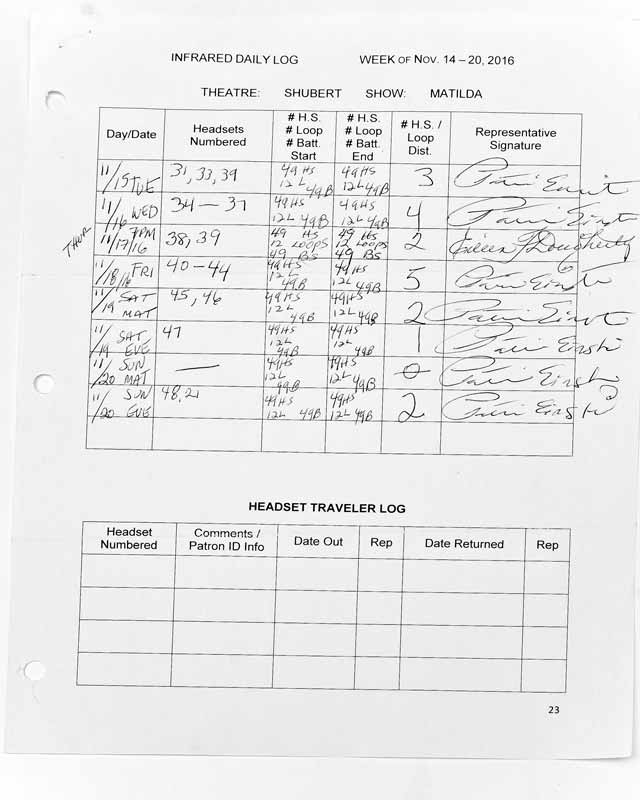 INFRARED DAILY LOG WEEK OF NOV. 14 – 20, 2016
THEATRE: SHUBERT SHOW: MATILDA
Day/Date Headsets Numbered # H.S. # Loop # Batt. Start # H.S. # Loop # Batt. End # H.S. / Loop Dist. Representative Signature
11/15 TUE 31, 33, 39 49HS 12L 49B 49HS 12L 49B 3
11/16 WED 34 — 37 49HS 12L 49B 49HS 12L 49B 4
THUR 7PM 11/17/16 38, 39 49 HS 12 LOOPS 49 BS 49 HS 12 LOOPS 49 BS 2 Eileen Dougherty
11/18/16 FRI 40 – 44 49HS 12L 49B 49HS 12L 49B 5
11/19 SAT MAT 45, 46 49HS 12L 49B 49HS 12L 49B 2
11/19 SAT EVE 47 49HS 12L 49B 49HS 12L 49B 1
11/20 SUN MAT — 49HS 12L 49B 49HS 12L 49B 0
11/20 SUN EVE 48, 21 49HS 12L 49B 49HS 12L 49B 2
HEADSET TRAVELER LOG
Headset Numbered Comments / Patron ID Info Date Out Rep Date Returned Rep
23